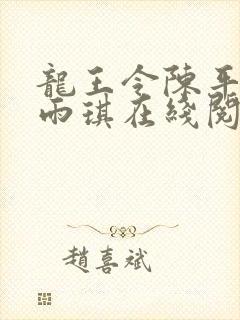 龍王令陳平
雨琪在綫閱
趙喜斌